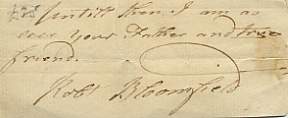 Untill then I am as
ever your Father and true
friend.
Robt Bloomfield